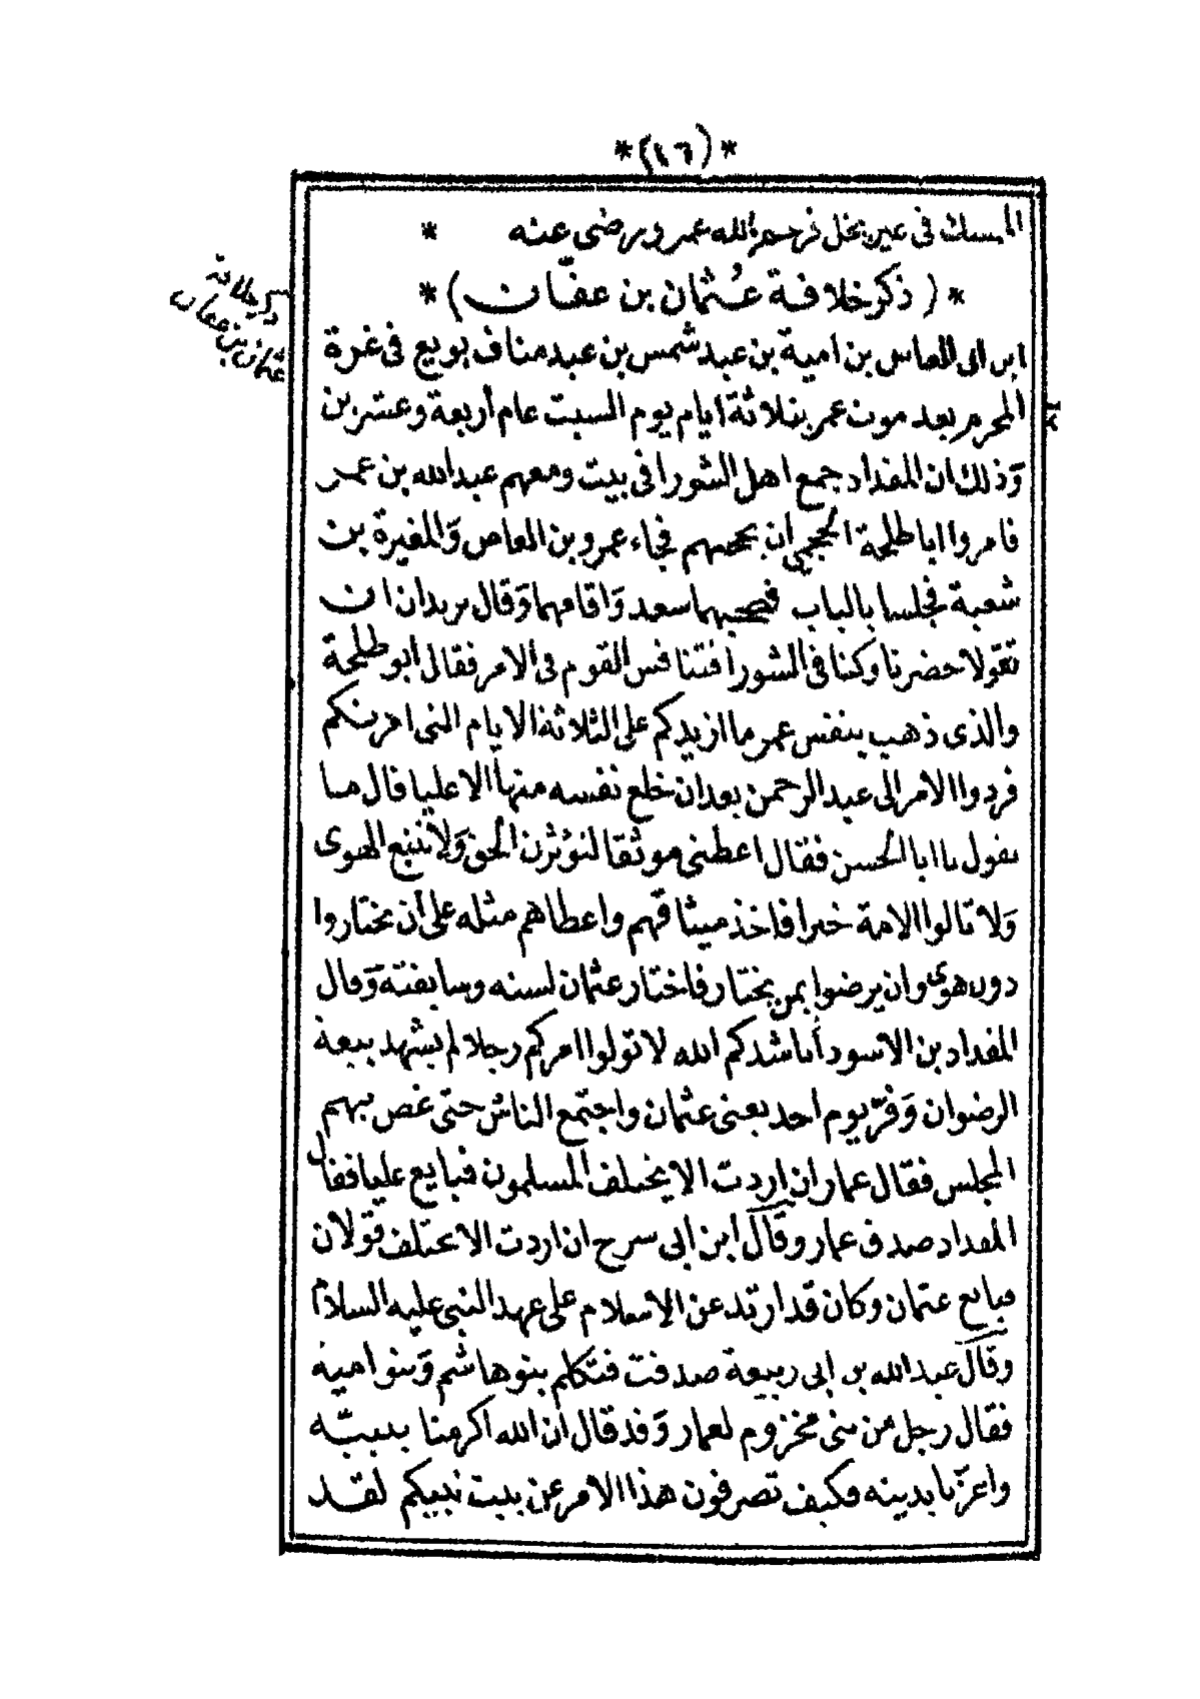 *(١٦)*
المسك في عين بخل فرحم الله عمر ورضى عنه *
*( ذكر خلافة عُثمان بن عفّان )*
ذكر خلافة
عثمان بن عفان
ابن ابى العاص بن امية بن عبد شمس بن عبد مناف بويع فى غرة
المحرم بعد موت عمر بثلاثة ايام يوم السبت عام أربعة وعشرين
وَذلك ان المقداد جمع اهل الشورا فى بيت ومعهم عبد الله بن عمر
فامروا ابا طلحة الحجبى ان يحجبهم فجاء عمرو بن العاص وَالمغيرة بن
شعبة فجلسا بالباب فحصبهما سعد وَاقامهما وَقال يريدان ان
تقولا حضرنا وكنا فى الشورا فتنافس القوم فى الامر فقال ابو طلحة
والذى ذهب بنفس عمر ما ازيدكم على الثلاثة الايام التى امرتكم
فردوا الامر الى عبد الرحمن بعد ان خلع نفسه منها الا عليا قال ما
تقول يا ابا الحسن فقال اعطنى موثقا لتؤثرن الحق وَلا تتبع الهوى
وَلا تالوا الامة خيرا فاخذ ميثاقهم واعطاهم مثله على أن يختاروا
دون هوى وان يرضوا بمن يختار فاختار عثمان لسنه وسابقته وَقال
المقداد بن الاسود أناشدكم الله لا تولوا امركم رجلا لم يشهد بيعة
الرضوان وَفرّ يوم احد يعنى عثمان واجتمع الناس حتى غص بهم
المجلس فقال عمار ان اردت الا يختلف المسلمون فبايع عليا فقال
المقداد صدق عمار وقال ابن ابى سرح ان اردت الا تختلف قولان
فبايع عثمان وكان قد ارتد عن الاسلام على عهد النبى عليه السلام
وقال عبد الله بن ابى ربيعة صدقت فتكلم بنو هاشم وَبنو امية
فقال رجل من بنى مخزوم لعمار وَقد قال ان الله اكرمنا بنبيّه
واعزّنا بدينه فكيف تصرفون هذا الامر عن بيت نبيكم لقد